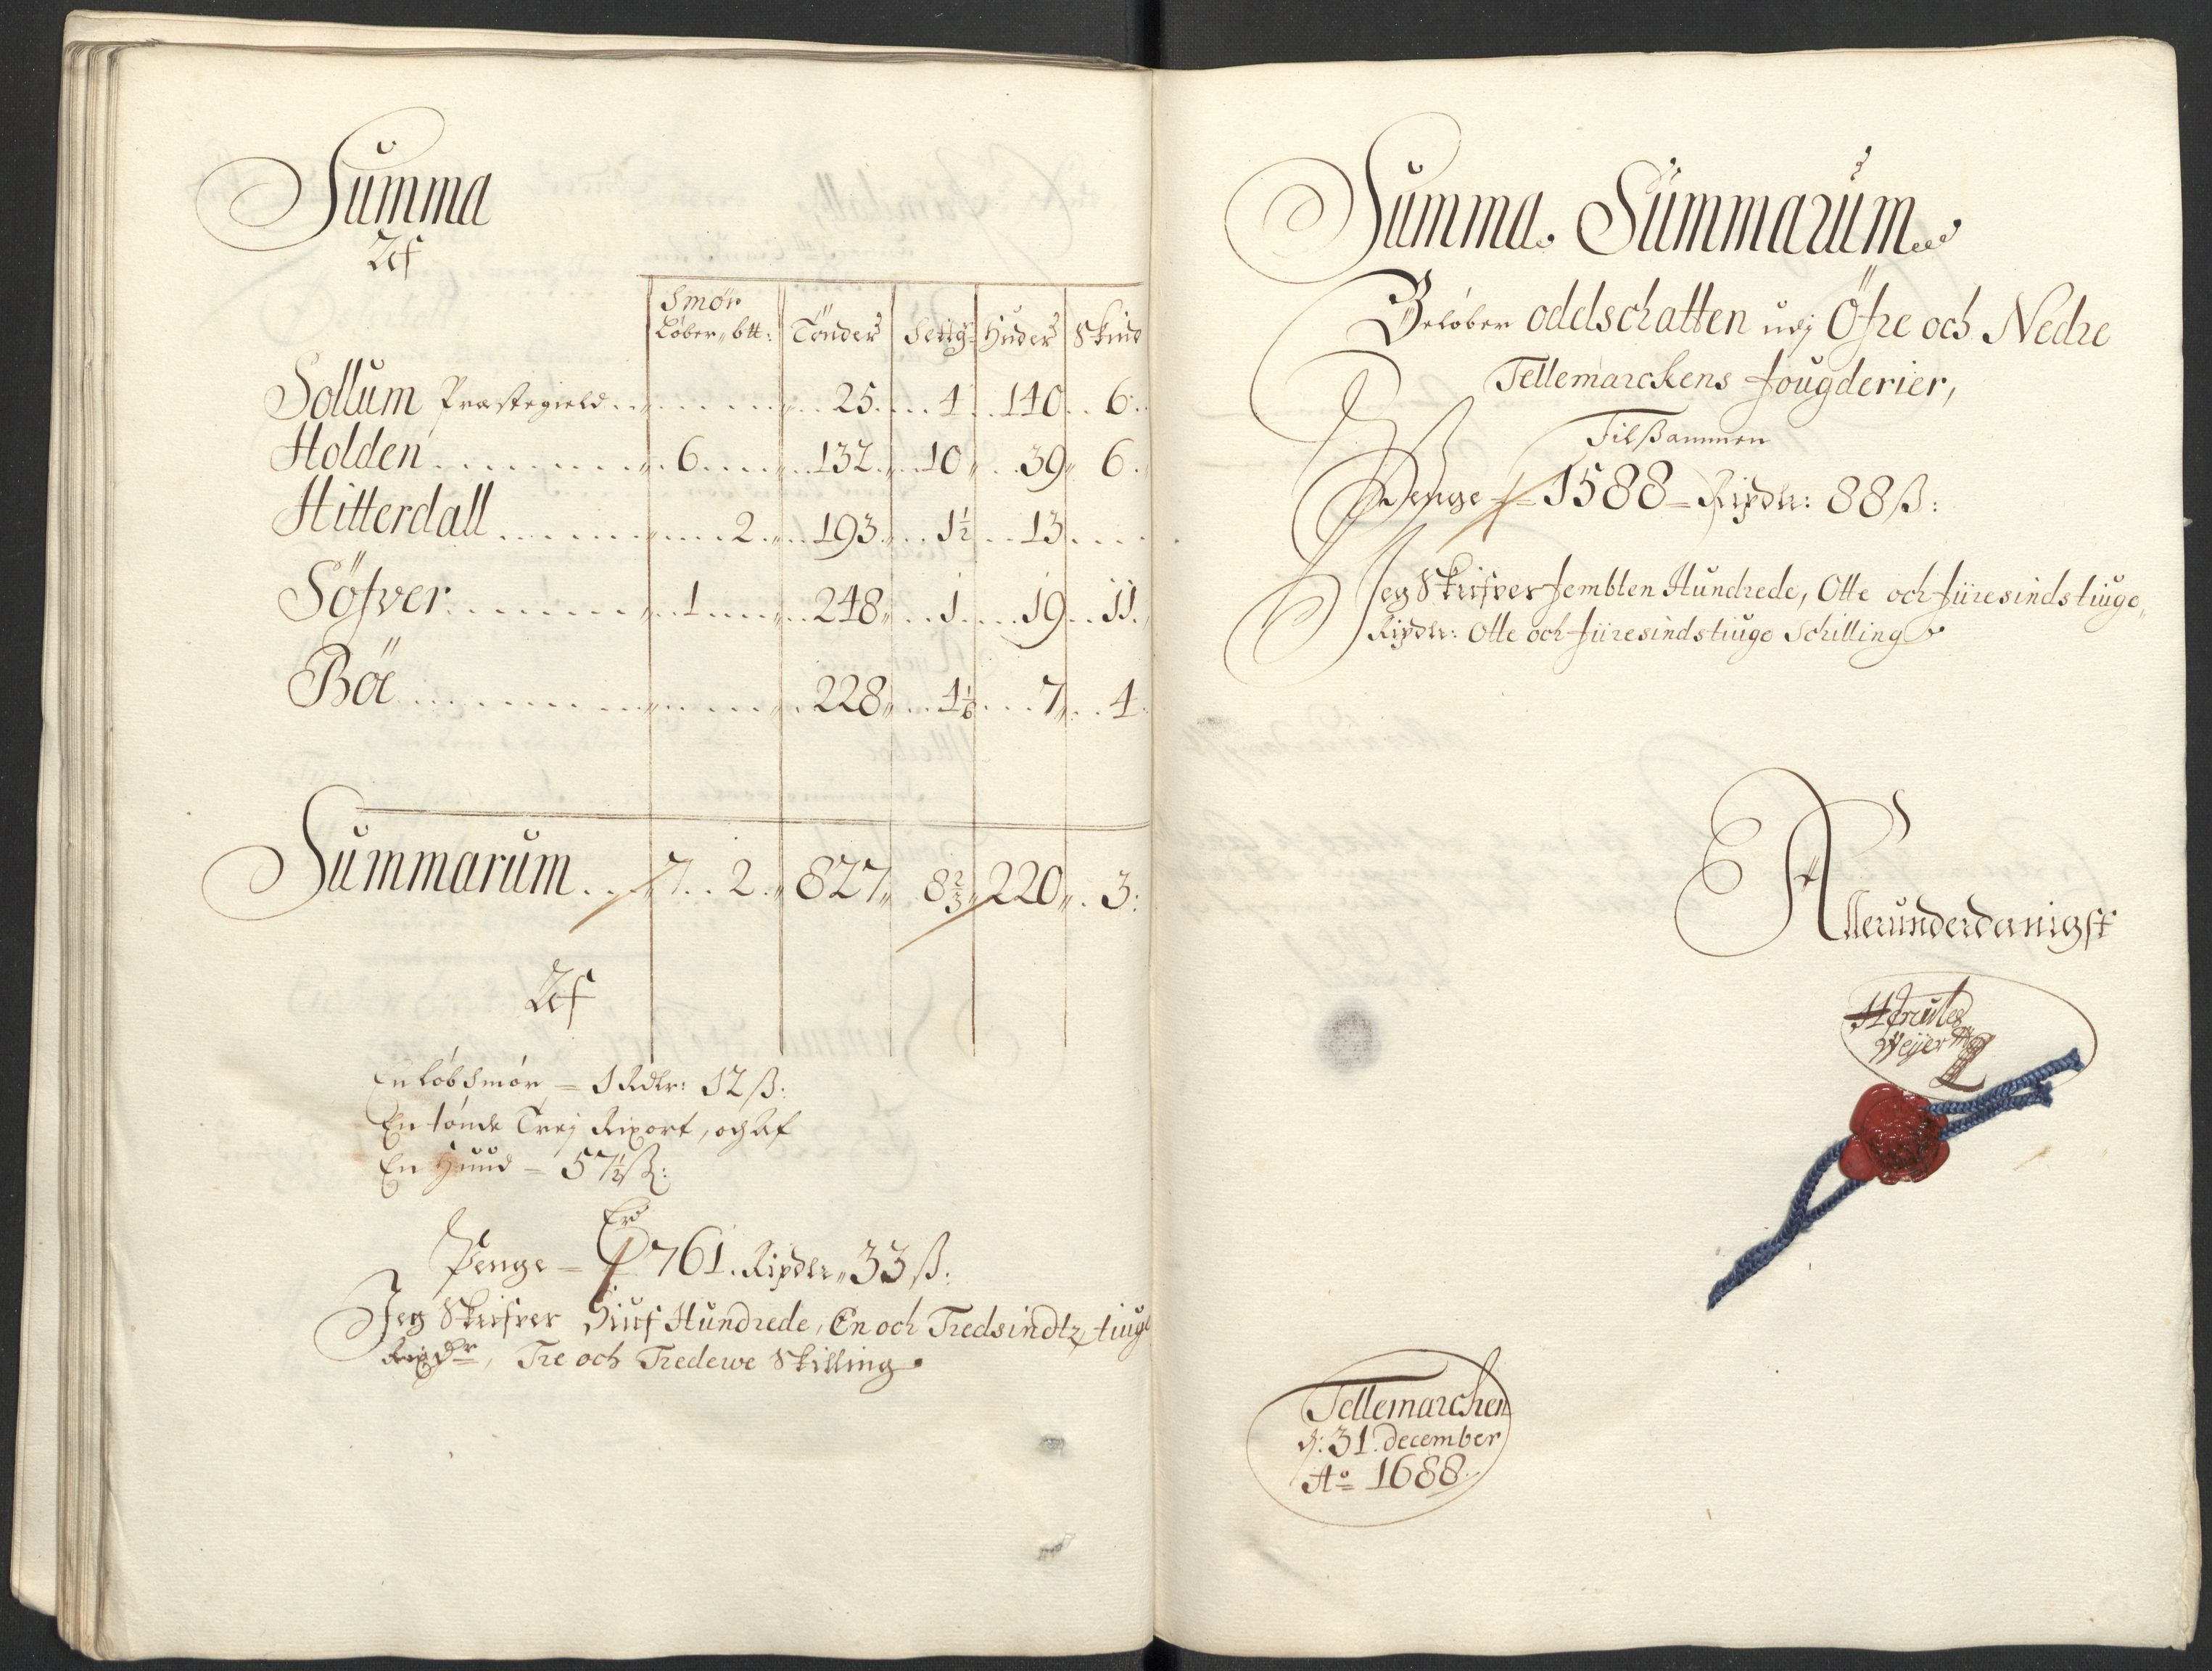 Summa
Af
Smør
Løber, btt: Tønder Setig Huder Skind
Sollum Præstegield 25 4 140 6
Holden 6 132 10 39 6
Hitterdall 2 193 1½ 13
Söfver 1 248 1 19 11
Böe 228 4⅙ 7 4
Summarum 7 2 827 8⅔ 220 3:
Af
En løb Smør = 1 Rdlr: 12 ß:
En tønde Trej Rixort, och Af
En Huud = 57½ ß:
Er
Penge = 761. Rixdlr, 33 ß:
Jeg Skrifver Siuf Hundrede, En och Tredsindtz tiuge
RixDr, Tre och Tredewe Skilling
Summa. Summarum
Beløber odelschatten udj Öfre och Nedre
Tellemarckens fougderier,
Tilßammen
Penge = 1588 = Rixdlr: 88 ß:
Jeg Skrifver fembten Hundrede, Otte och fiiresindstiuge
Rixdlr: Otte och fiiresindstiuge Schilling
Allerunderdanigst
Weyer
Tellemarchen
d: 31. december
Ao 1688